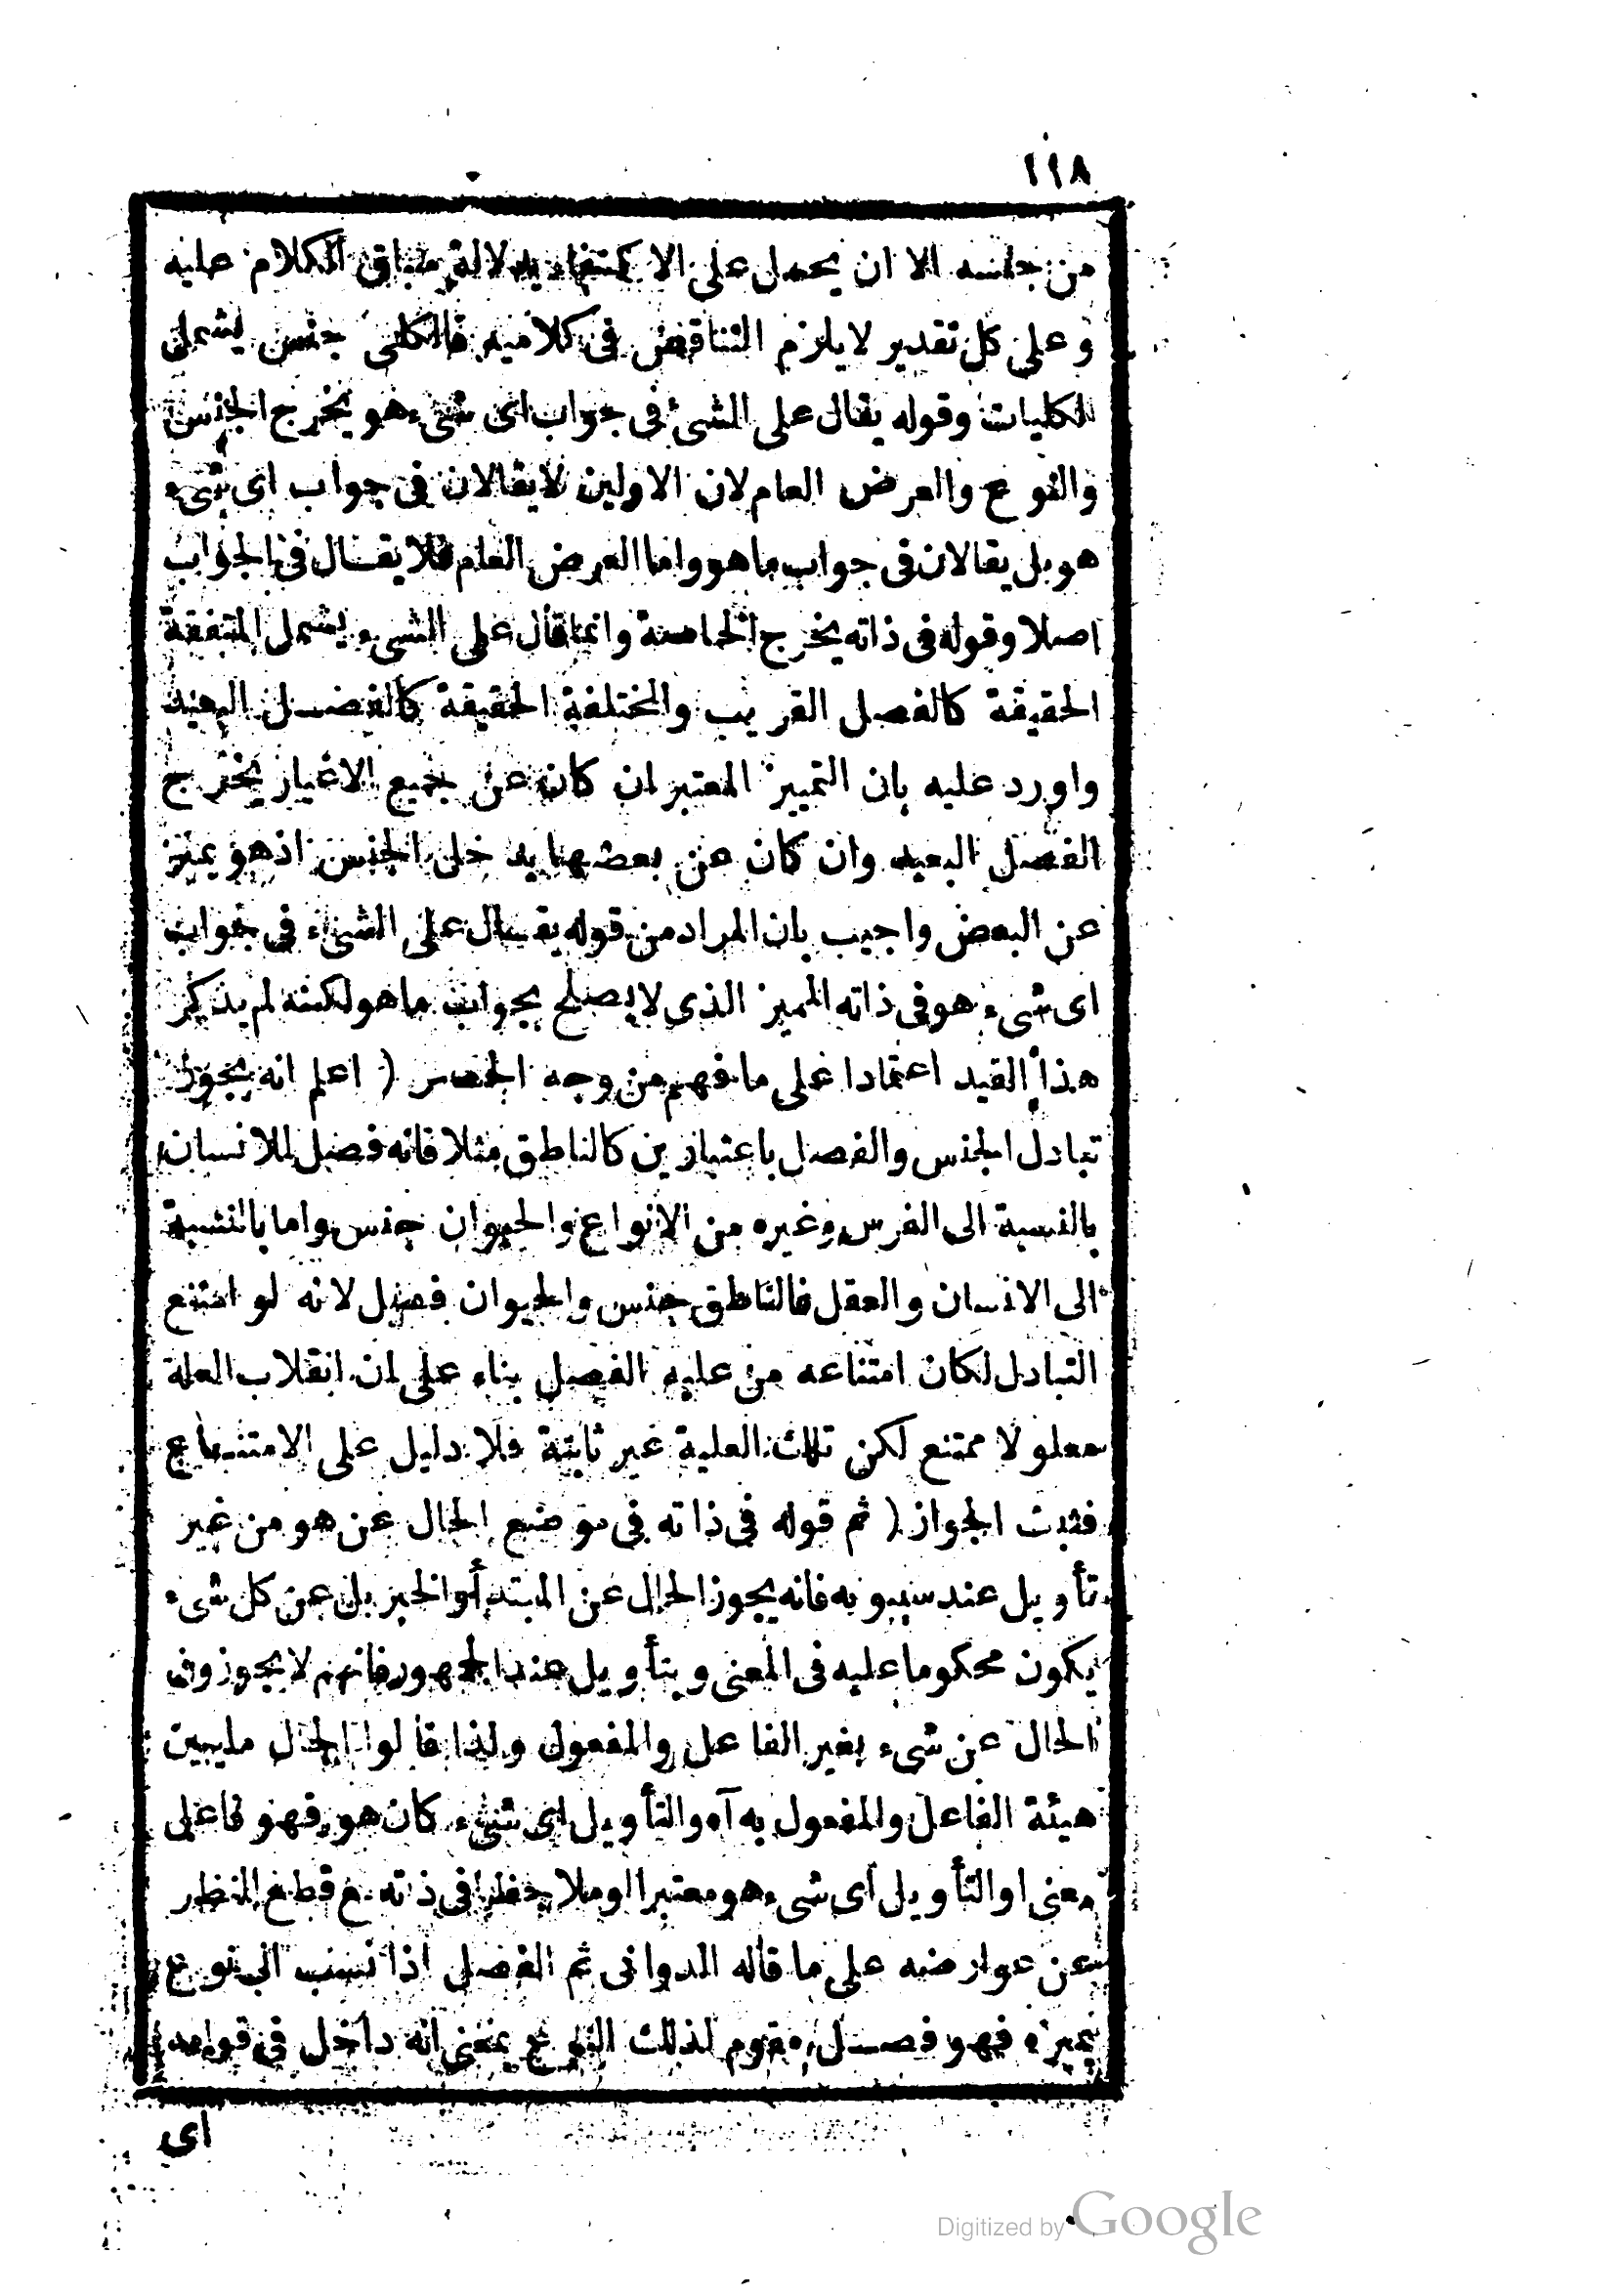 ١١٨
من جانبه الا ان يحمل على الاكتفاء بدلالة سباق الكلام عليه
وعلى كل تقدير لا يلزم التناقض فى كلاميه فالكلى جنس يشمل
الكليات وقوله يقال على الشئ فى جواب اى شىء هو يخرج الجنس
والنوع والعرض العام لان الاولين لا يقالان فى جواب اى شىء
هو بل يقالان فى جواب ما هو واما العرض العام فلا يقال فى الجواب
اصلا وقوله فى ذاته يخرج الخاصة وانما قال على الشىء يشمل المتفقة
الحقيقة كالفصل القريب والمختلفة الحقيقة كالفصل البعيد
واورد عليه بان التمييز المعتبر ان كان عن جميع الاغيار يخرج
الفصل البعيد وان كان عن بعضها يدخل الجنس اذ هو يميز
عن البعض واجيب بان المراد من قوله يقال على الشىء فى جواب
اى شىء هو فى ذاته المميز الذى لا يصلح بجواب ما هو لكنه لم يذكر
هذا القيد اعتمادا على ما فهم من وجه الحصر ( اعلم انه يجوز
تبادل الجنس والفصل باعتبارين كالناطق مثلا فانه فصل للانسان
بالنسبة الى الفرس وغيره من الانواع والحيوان جنس واما بالنسبة
الى الانسان والعقل فالناطق جنس والحيوان فصل لانه لو امتنع
التبادل لكان امتناعه من علية الفصل بناء على ان انقلاب العلة
معلولا ممتنع لكن تلك العلية غير ثابتة فلا دليل على الامتناع
فثبت الجواز ( ثم قوله فى ذاته فى موضع الحال عن هو من غير
تأويل عند سيبويه فانه يجوز الحال عن المبتدأ والخبر بل عن كل شىء
يكون محكوما عليه فى المعنى وبتأويل عند الجمهور فانهم لا يجوزون
الحال عن شىء بغير الفاعل والمفعول ولذا قالوا الحال ما يبين
هيئة الفاعل والمفعول به آه والتأويل اى شىء كان هو فهو فاعل
معنى او التأويل اى شىء هو معتبرا او ملاحظا فى ذاته مع قطع النظر
عن عوارضه على ما قاله الدوانى ثم الفصل اذا نسب الى نوع
يميزه فهو فصل مقوم لذلك النوع بمعنى انه داخل فى قوامه
اى
Digitized by Google